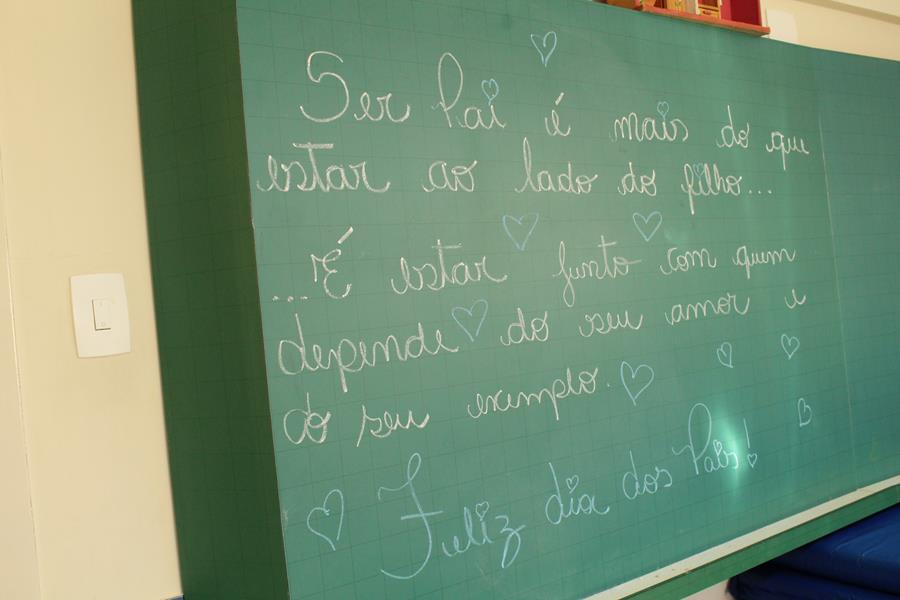 Ser Pai é mais do que
estar ao lado do filho...
...É estar junto com quem
depende do seu amor e
do seu exemplo.
Feliz dia dos Pais!